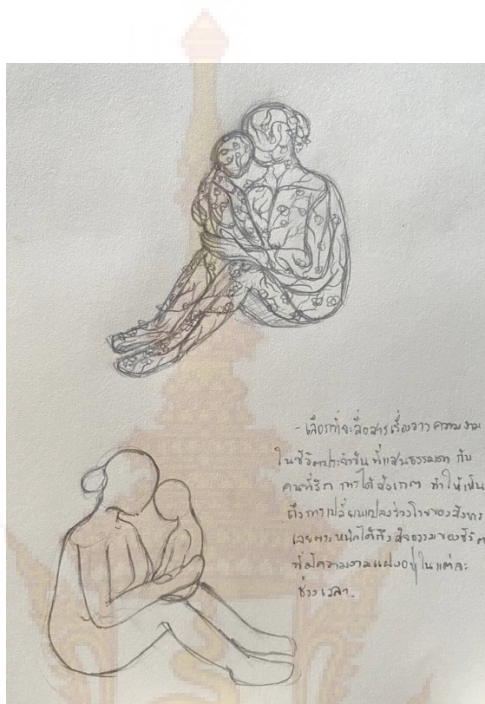 - เลือกที่จะสื่อสารเรื่องราว ความงาม
ในชีวิตประจำวัน ที่แสนธรรมดา กับ
คนที่รัก การได้สังเกต ทำให้เห็น
ถึงการเปลี่ยนแปลงร่วงโรยของสังขาร
เลยตระหนักได้ถึง สัจธรรมของชีวิต
ที่มีความงามแฝงอยู่ในแต่ละ
ช่วงเวลา.